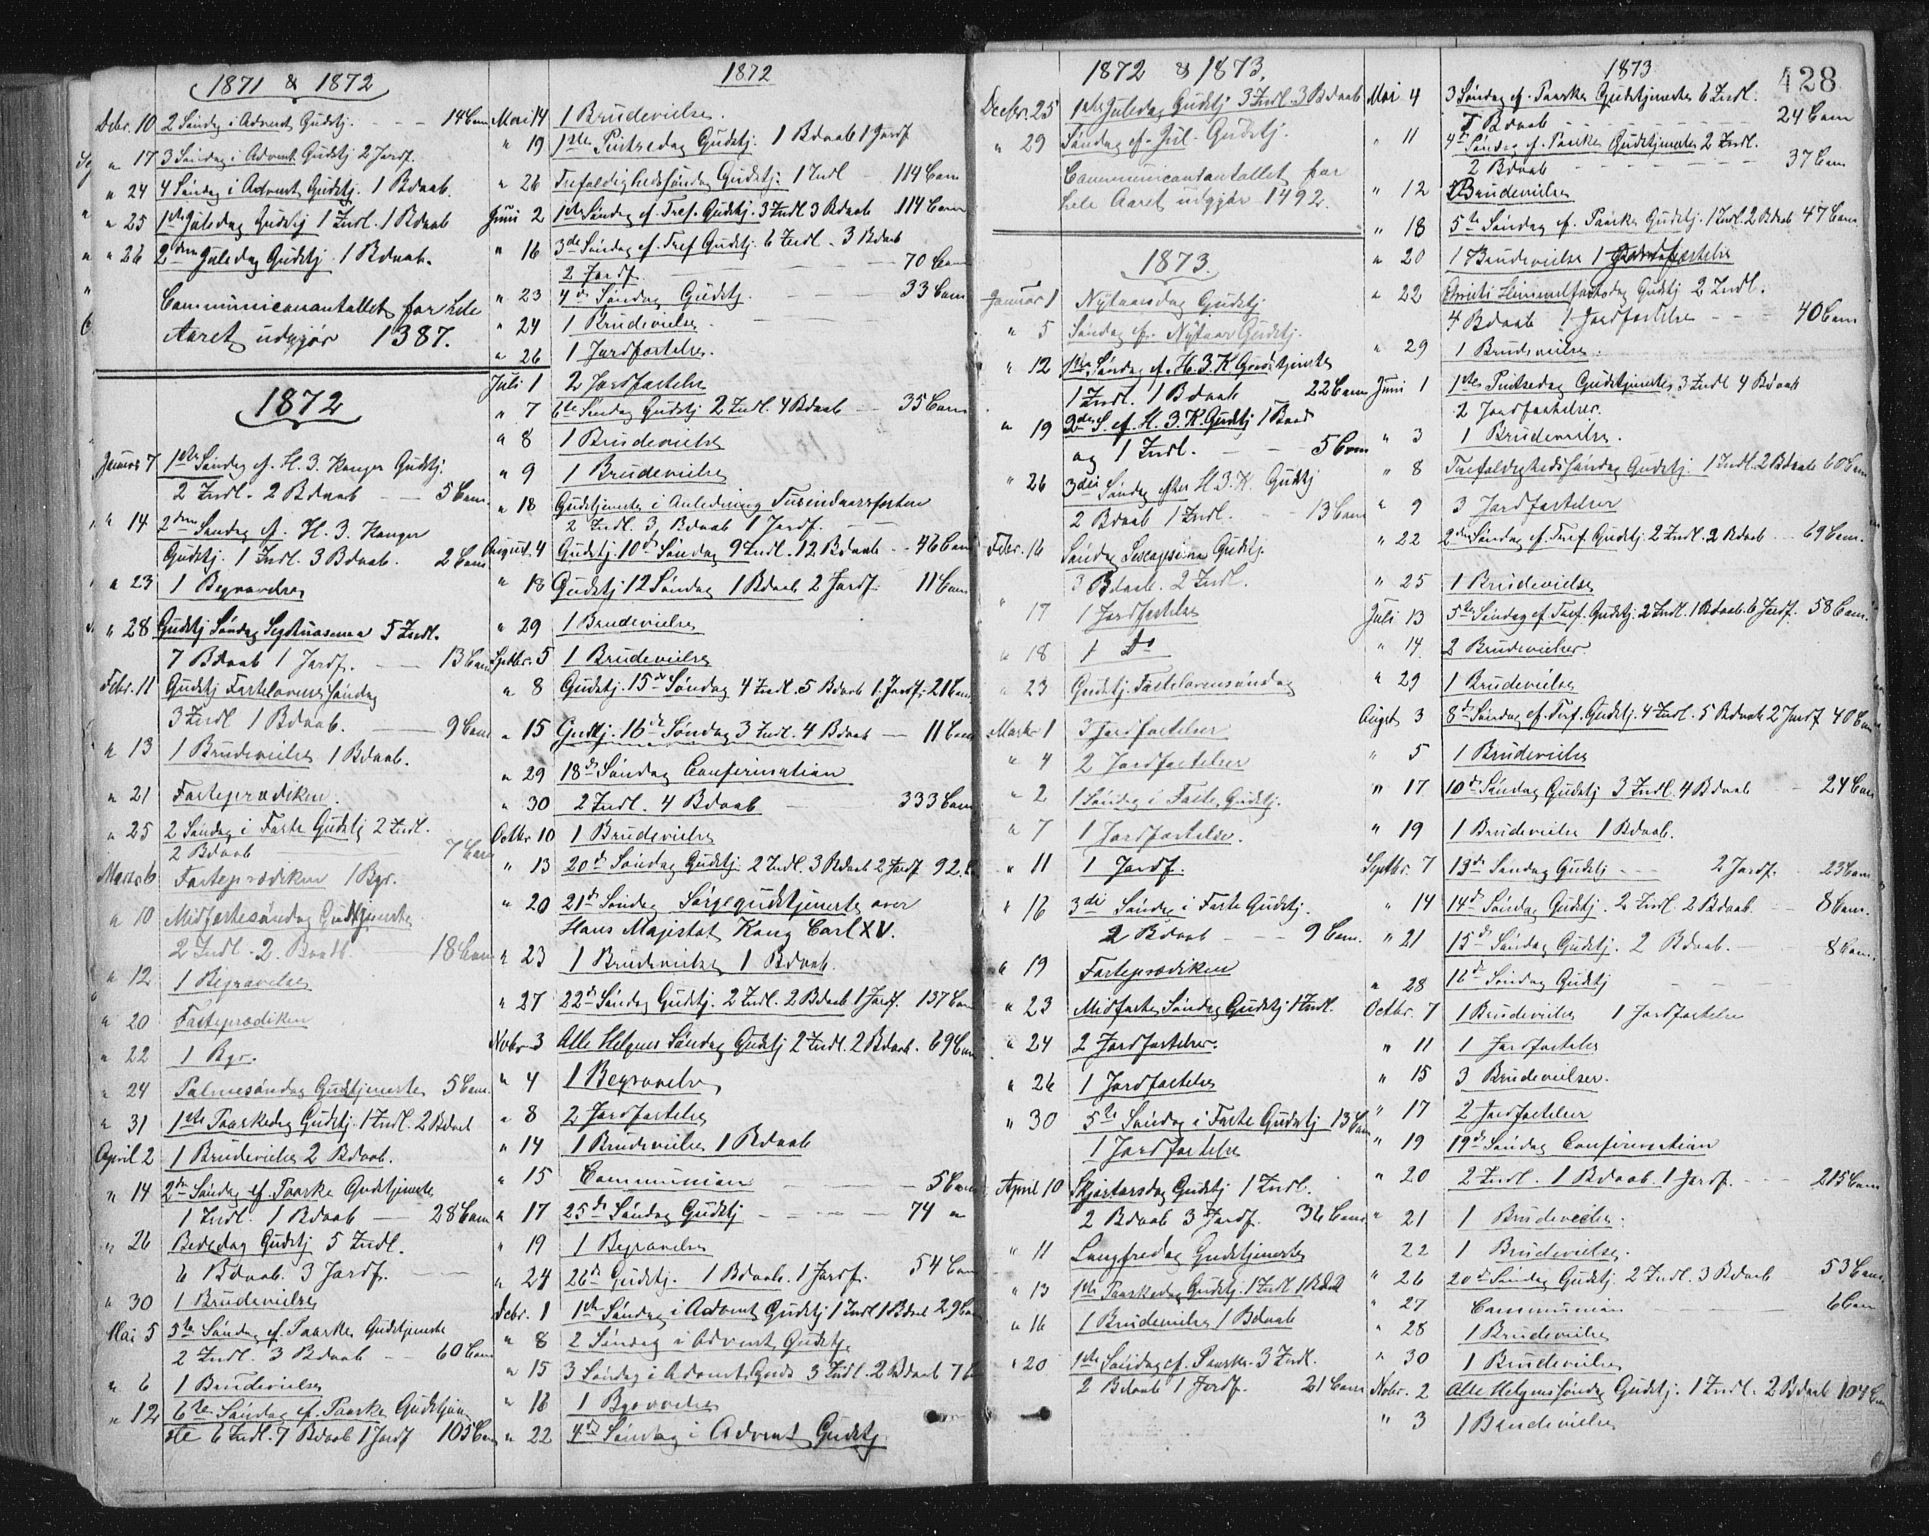 1871 & 1872
Debr. 10 2 Søndag i Advent Gudstj. 14 Com
" 17 3 Søndag i Advent Gudstj 2 Jordf.
" 24 4 Søndag i Advent Gudstj. 1 Bdaab.
" 25 1ste Juledag Gudstj 1 Indl. 1 Bdaab
" 26 2den Juledag Gudstj 1 Bdaab.
Communicanantallet for hele
Aaret udgjør 1387.
1872
Januar 7 1ste Søndag ef. H. 3. Konger Gudstj.
2 Indl. 2 Bdaab 5 Com.
" 14 2den Søndag ef. H. 3. Konger
Gudstj. 1 Indl. 3 Bdaab. 2 Com
" 23 1 Begravelse
" 28 Gudstj Søndag Septuagesima 5 Indl.
7 Bdaab 1 Jordf. 13 Com
Febr. 11 Gudstj Fastelavens Søndag
3 Indl 1 Bdaab. 9 Com
" 13 1 Brudevielse 1 Bdaab.
" 21 Fasteprædiken.
" 25 2 Søndag i Faste Gudstj 2 Indl.
2 Bdaab 7 Com
Marts 6 Fasteprædiken 1 Bgr.
" 10 Midfastesøndag Gudstjeneste
2 Indl. 2. Bdaab. 18 Com
" 12 1 Begravelse
" 20 Fasteprædiken
" 22 1 Bgr.
" 24 Palmesøndag Gudstjeneste 5 Com.
" 31 1ste Paaskedag Gudstj. 1 Indl. 2 Bdaab
April 2 1 Brudevielse 2 Bdaab.
" 14 2den Søndag ef. Paaske Gudstjeneste
1 Indl. 1 Bdaab 28 Com
" 26 Bededag Gudstj 5 Indl.
6 Bdaab. 3 Jordf.
" 30 1 Brudevielse
Mai 5 5te Søndag ef. Paaske Gudstjeneste
2 Indl. 3 Bdaab 60 Com
" 6 1 Brudevielse
" 12 6te Søndag ef. Paaske Gudstjene
ste 6 Indl. 7 Bdaab 1 Jordf 105 Com
1872
Mai 14 1 Brudevielse.
" 19 1ste Pintsedag Gudstj. 1 Bdaab 1 Jordf
" 26 Trefoldighedssøndag Gudstj. 1 Indl 114 Com
Juni 2 1ste Søndag ef. Tref. Gudstj. 3 Indl 3 Bdaab 114 Com
" 16 3de Søndag ef. Tref Gudstj. 6 Indl. 3 Bdaab
2 Jordf. 70 Com
" 23 4de Søndag Gudstj. 33 Com
" 24 1 Brudevielse
" 26 1 Jordfæstelse.
Juli 1 2 Jordfæstelse
" 7 6te Søndag Gudstj 2 Indl. 4 Bdaab 35 Com
" 8 1 Brudevielse
" 9 1 Brudevielse
" 18 Gudstjeneste i Anledning Tusindaarsfesten
2 Indl. 3 Bdaab 1 Jordf.
August. 4 Gudstj. 10de Søndag 9 Indl. 12 Bdaab 46 Com
" 18 Gudstj 12 Søndag 1 Bdaab 2 Jordf. 11 Com
" 29 1 Brudevielse
Septbr. 5 1 Brudevielse
" 8 Gudstj. 15de Søndag 4 Indl. 5 Bdaab 1 Jordf. 21 Com
" 15 Gudstj. 16de Søndag 3 Indl. 4 Bdaab 11 Com
" 29 18de Søndag Confirmation
" 30 2 Indl. 4 Bdaab 333 Com
Octbr 10 1 Brudevielse
" 13 20de Søndag Gudstj. 2 Indl. 3 Bdaab 2 Jordf 92.
" 20 21de Søndag Sørgegudstjeneste over
Hans Majestæt Kong Carl XV.
" 23 1 Brudevielse 1 Bdaab.
" 27 22de Søndag Gudstj. 2 Indl. 2 Bdaab 1 Jordf. 137 Com
Novbr 3 Alle Helgens Søndag Gudstj 2 Indl. 2 Bdaab. 69 Com
" 4 1 Begravelse
" 8 2 Jordfæstelse
" 14 1 Brudevielse 1 Bdaab
" 15 Communion 5 Com
" 17 25de Søndag Gudstj 74 "
" 19 1 Begravelse
" 24 26de Gudstj. 1 Bdaab. 1 Jordf. 54 Com
Debr. 1 1ste Søndag i Advent Gudstj 1 Indl 1 Bdaab 29 Com
" 8 2 Søndag i Advent Gudstj.
" 15 3 Søndag i Advent Guds 3 Indl. 2 Bdaab 7
" 16 1 Begravelse
" 22 4de Søndag i Advent Gudstj
1872 & 1873.
Decbr. 25 1ste Juledag Gudstj 3 Indl. 3 Bdaab
" 29 Søndag ef. Jul. Gudstj.
Communicantantallet for
hele Aaret udgjør 1492.
1873.
Januar 1 Nytaarsdag Gudstj
" 5 Søndag ef. Nytaar Gudstj.
" 12 1ste Søndag ef. H. 3. K Gudstjeneste
1 Indl. 1 Bdaab 22 Com
" 19 2den S. ef. H. 3. K. Gudstj 1 Baab
og 1 Indl. 5 Com
" 26 3die Søndag efter H 3. K Gudstj
2 Bdaab 1 Indl. 13 Com
Febr. 16 Søndag Sexagesima Gudstj.
3 Bdaab. 2 Indl.
" 17 1 Jordfæstelse
" 18 1 Do
" 23 Gudstj. Fastelavenssøndag
Marts 1 3 Jordfæstelser
" 4 2 Jordfæstelser
" 2 1 Søndag i Faste Gudstj.
" 7 1 Jordfæstelse.
" 11 1 Jordf.
" 16 3die Søndag i Faste Gudstj.
2 Bdaab 9 Com.
" 19 Fasteprædiken
" 23 Midfaste Søndag Gudstj 1 Indl.
" 24 2 Jordfæstelser.
" 26 1 Jordfæstelse
" 30 5te Søndag i Faste Gudstj 13 Com
1 Jordfæstelse
April 10 Skjærtorsdag Gudstj 1 Indl.
2 Bdaab 3 Jordf. 36 Com
" 11 Langfredag Gudstjeneste
" 13 1ste Paaskedag Gudstj. 1 Indl 1 Bdaab
" 16 1 Brudevielse 1 Bdaab
" 20 1ste Søndag ef. Paaske 3 Indl.
2 Bdaab 1 Jordf. 21 Com
1873
128
Mai 4 3 Søndag ef. Paaske Gudstjeneste 6 Indl.
7 Bdaab 24 Com
" 11 4de Søndag ef. Paaske Gudstjeneste 2 Indl.
2 Bdaab 37 Com
" 12 Brudevielse
" 18 5te Søndag ef. Paaske Gudstj. 1 Indl. 2 Bdaab 47 Com
" 20 1 Brudevielse 1 Jordfæstelse
" 22 Christi Himmelfartsdag Gudstj 2 Indl.
4 Bdaab 1 Jordfæstelse 40 Com
" 29 1 Brudevielse.
Juni 1 1ste Pintsedag Gudstjeneste 3 Indl 4 Bdaab
2 Jordfæstelser.
" 3 1 Brudevielse.
" 8 Trefoldighedssøndag Gudstj. 1 Indl. 2 Bdaab 60 Com
" 9 3 Jordfæstelser
" 22 2den Søndag ef. Tref Gudstj 2 Indl. 2 Bdaab 69 Com.
" 25 1 Brudevielse
Juli 13 5te Søndag ef Tref. Gudstj. 2 Indl. 1 Bdaab 6 Jordf. 58 Com.
" 14. 2 Brudevielser.
" 29 1 Brudevielse
Augst 3 8de Søndag ef. Tref. Gudstj. 4 Indl. 5 Bdaab 2 Jordf 40 Com
" 5 1 Brudevielse
" 17 10de Søndag Gudstj 3 Indl. 4 Bdaab 24 Com
" 19 1 Brudevielse 1 Bdaab.
Septbr. 7 13de Søndag Gudstj 2 Jordf. 23 Com.
" 14 14de Søndag Gudstj. 2 Indl. 2 Bdaab. 8 Com.
" 21 15de Søndag Gudstj. 2 Bdaab. 8 Com.
" 28 16de Søndag Gudstj
Octbr. 7 1 Brudevielse 1 Jordfæstelse
" 11 1 Jordfæstelse
" 15 3 Brudevielser.
" 17 2 Jordfæstelser
" 19 19de Søndag Confirmation
" 20 2 Indl. 1 Bdaab. 1 Jordf. 215 Com
" 21 1 Brudevielse.
22 1 Brudevielse.
" 26 20de Søndag Gudstj. 2 Indl. 3 Bdaab 53 Com
" 27 Communion 6 Com
" 28 1 Brudevielse
" 30 1 Brudevielse
Novbr. 2 Alle Helgens Søndag Gudstj. 1 Indl. 2 Bdaab 104 Com
" 3 1 Brudevielse